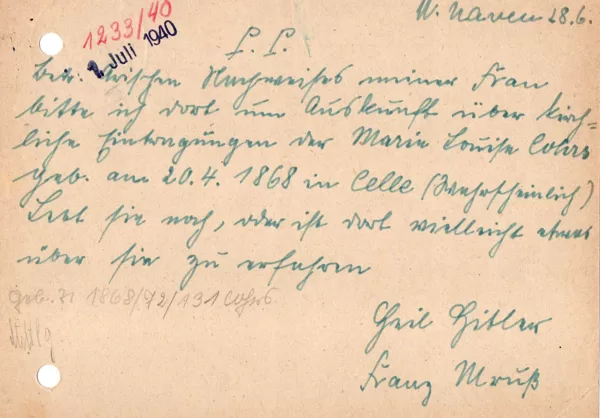 W. Haven 28.6.
1233/40
2. Juli 1940
P. P.
Betr. arischen Nachweises meiner Frau
bitte ich dort um Auskunft über kirch-
liche Eintragungen der Marie Louise Cohrs
geb. am 20.4. 1868 in Celle (Wahrscheinlich)
Lebt sie noch, oder ist dort vielleicht etwas
über sie zu erfahren
geb. R 1868/72/131 Cohrs.
Heil Hitler
Franz Mruß